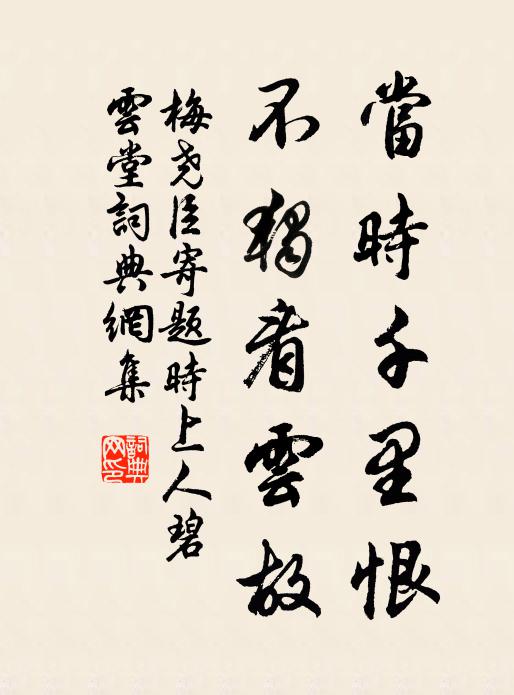 當時千里恨
不獨看雲故
梅堯臣寄題時上人碧
雲堂詞典網集
詞典
网印